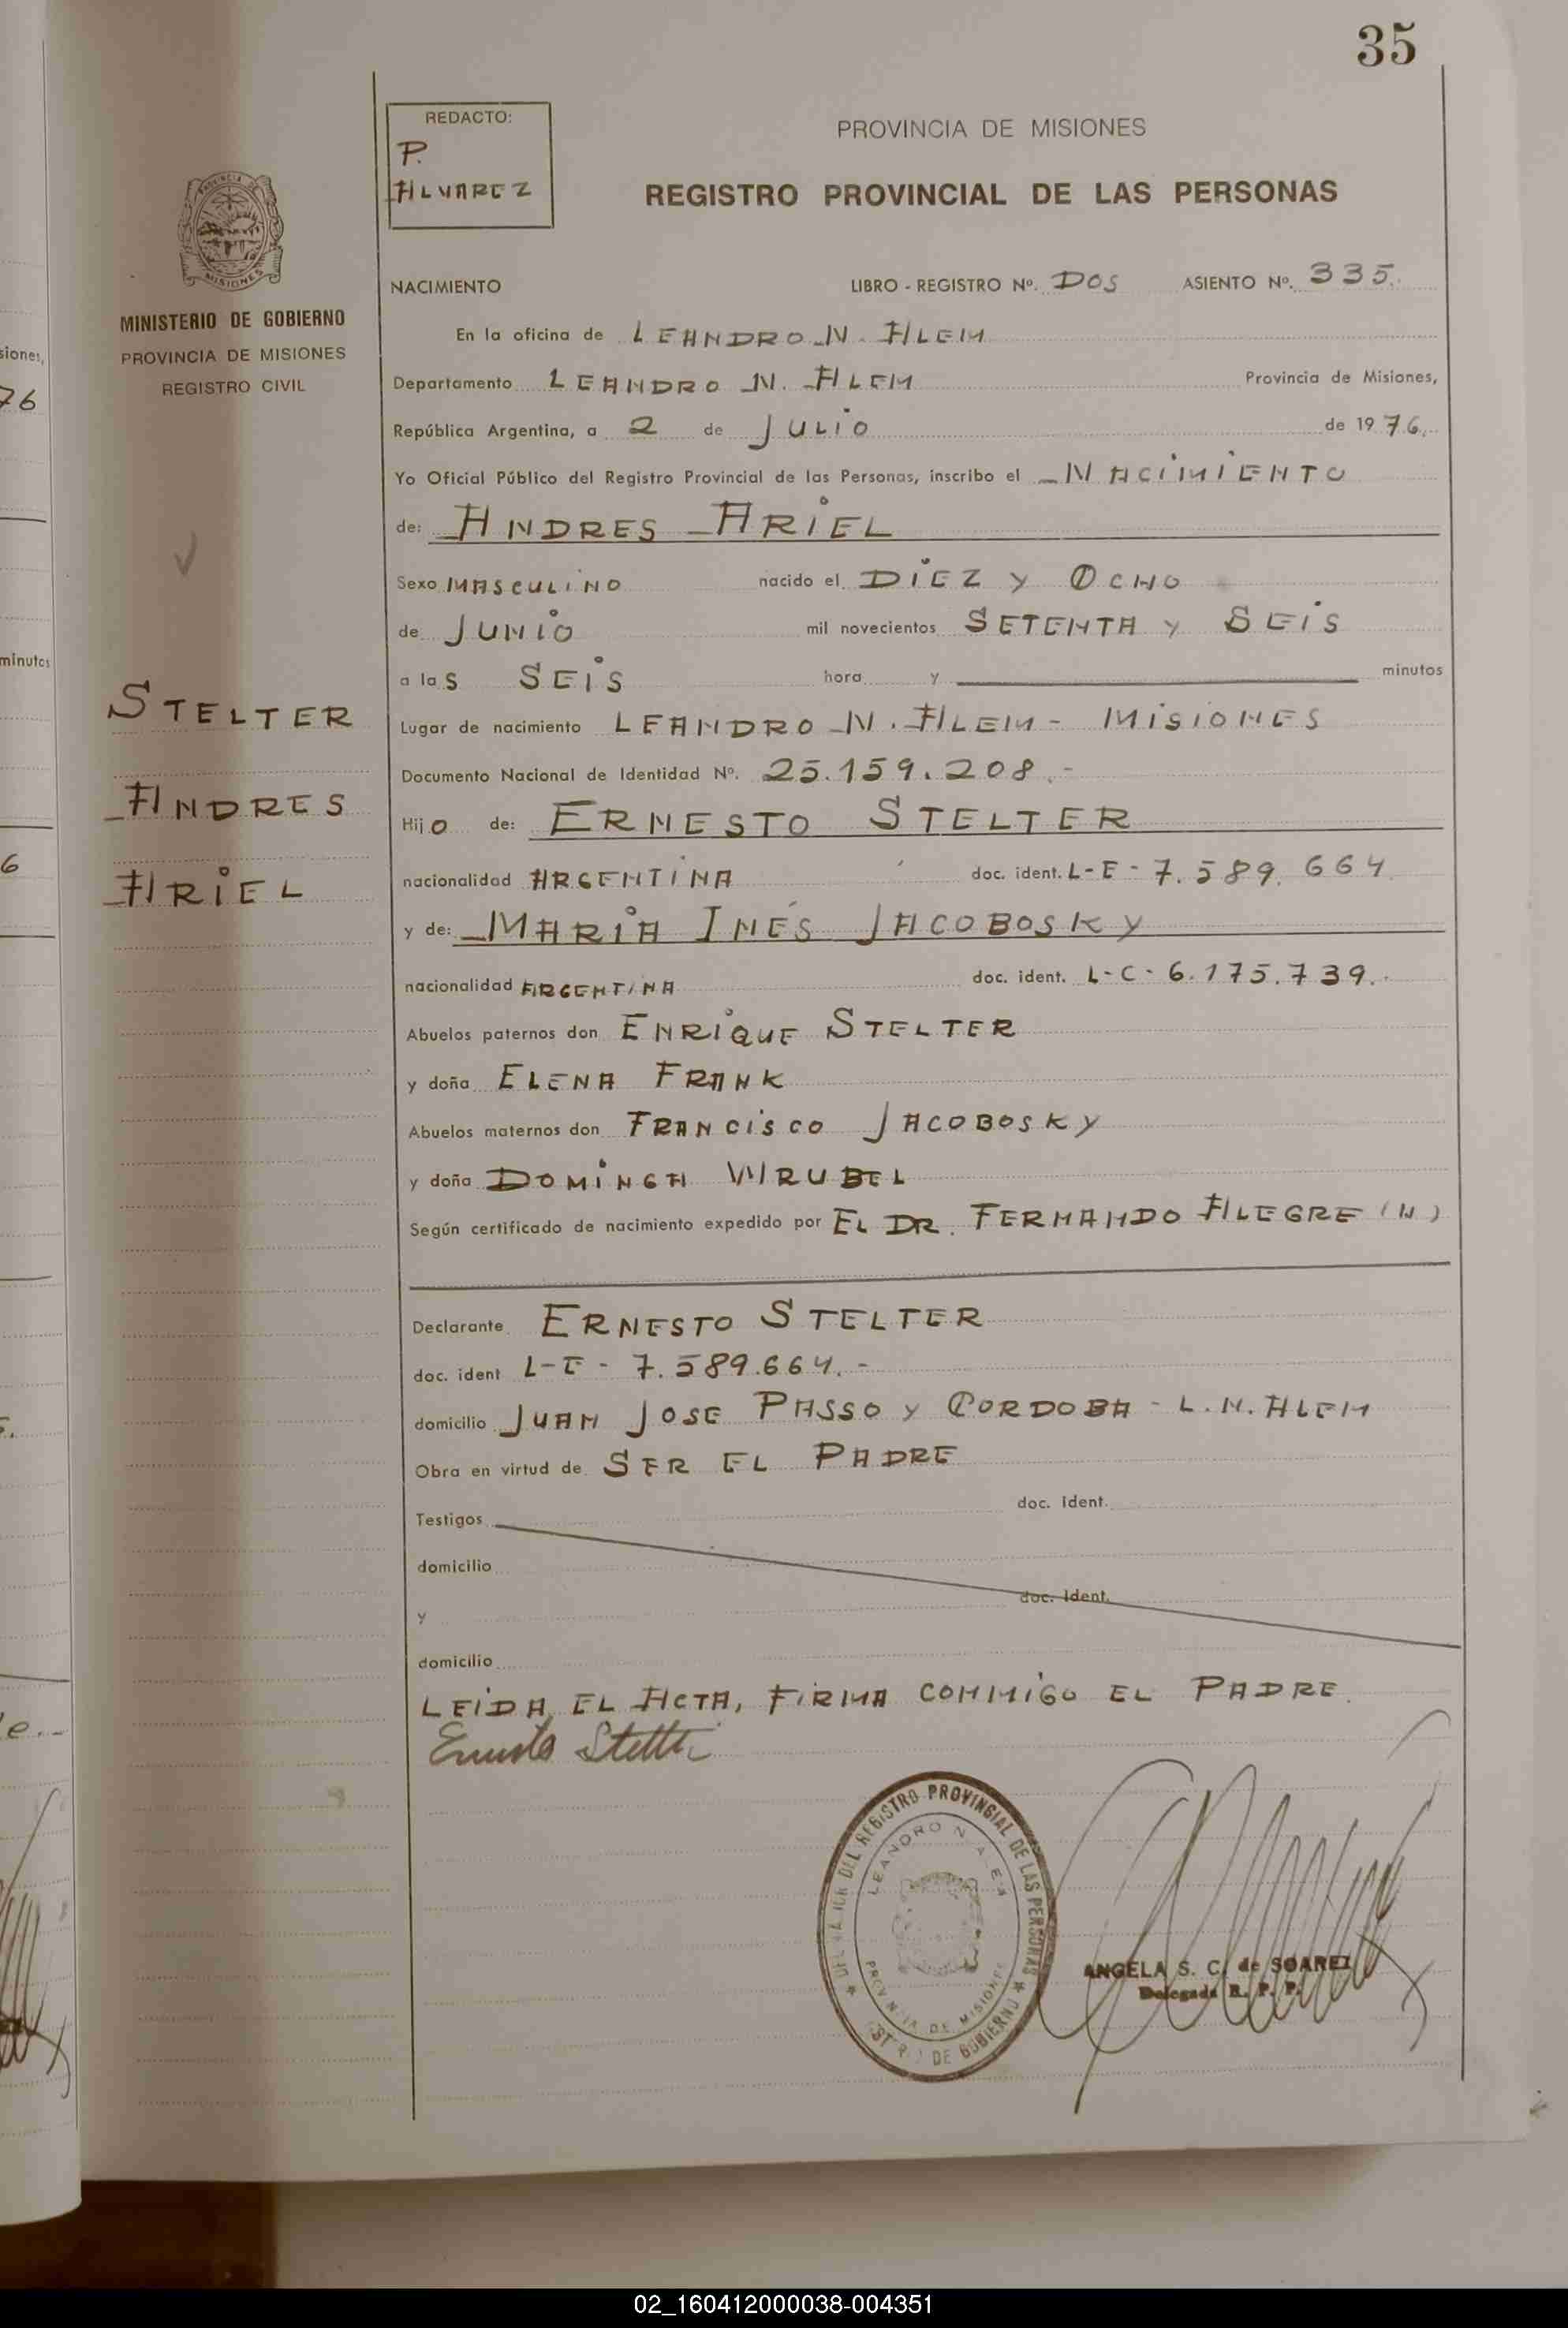 35
REDACTO:
P.
ALVAREZ
PROVINCIA DE MISIONES
REGISTRO PROVINCIAL DE LAS PERSONAS
PROVINCIA
MISIONES
MINISTERIO DE GOBIERNO
PROVINCIA DE MISIONES
REGISTRO CIVIL
siones,
76
minutos
6
NACIMIENTO LIBRO - REGISTRO Nº. DOS ASIENTO Nº. 335.
En la oficina de LEANDRO N. ALEM
Departamento LEANDRO N. ALEM Provincia de Misiones,
República Argentina, a 2 de JULIO de 1976.
Yo Oficial Público del Registro Provincial de las Personas, inscribo el NACIMIENTO
de: ANDRES ARIEL
Sexo MASCULINO nacido el DIEZ Y OCHO
de JUNIO mil novecientos SETENTA Y SEIS
a las SEIS hora y minutos
STELTER
ANDRES
ARIEL
Lugar de nacimiento LEANDRO N. ALEM - MISIONES
Documento Nacional de Identidad Nº. 25.159.208.-
Hijo de: ERNESTO STELTER
nacionalidad ARGENTINA doc. ident. L-E- 7.589.664
y de: MARIA INÉS JACOBOSKY
nacionalidad ARGENTINA doc. ident. L-C- 6.175.739.
Abuelos paternos don ENRIQUE STELTER
y doña ELENA FRANK
Abuelos maternos don FRANCISCO JACOBOSKY
y doña DOMINGA WRUBEL
Según certificado de nacimiento expedido por EL DR. FERNANDO ALEGRE (N)
Declarante ERNESTO STELTER
doc. ident L-E- 7.589.664.-
domicilio JUAN JOSE PASSO Y CORDOBA - L.N. ALEM
Obra en virtud de SER EL PADRE
doc. ident.
Testigos
domicilio
doc. ident.
y
domicilio
LEIDA EL ACTA, FIRMA CONMIGO EL PADRE.
Ernesto Stelter
DEL REGISTRO PROVINCIAL DE LAS PERSONAS
LEANDRO N. ALEM
PROVINCIA DE MISIONES
DE GOBIERNO
ANGELA S. C. de SOAREZ
Delegada R. P. P.
02_160412000038-004351